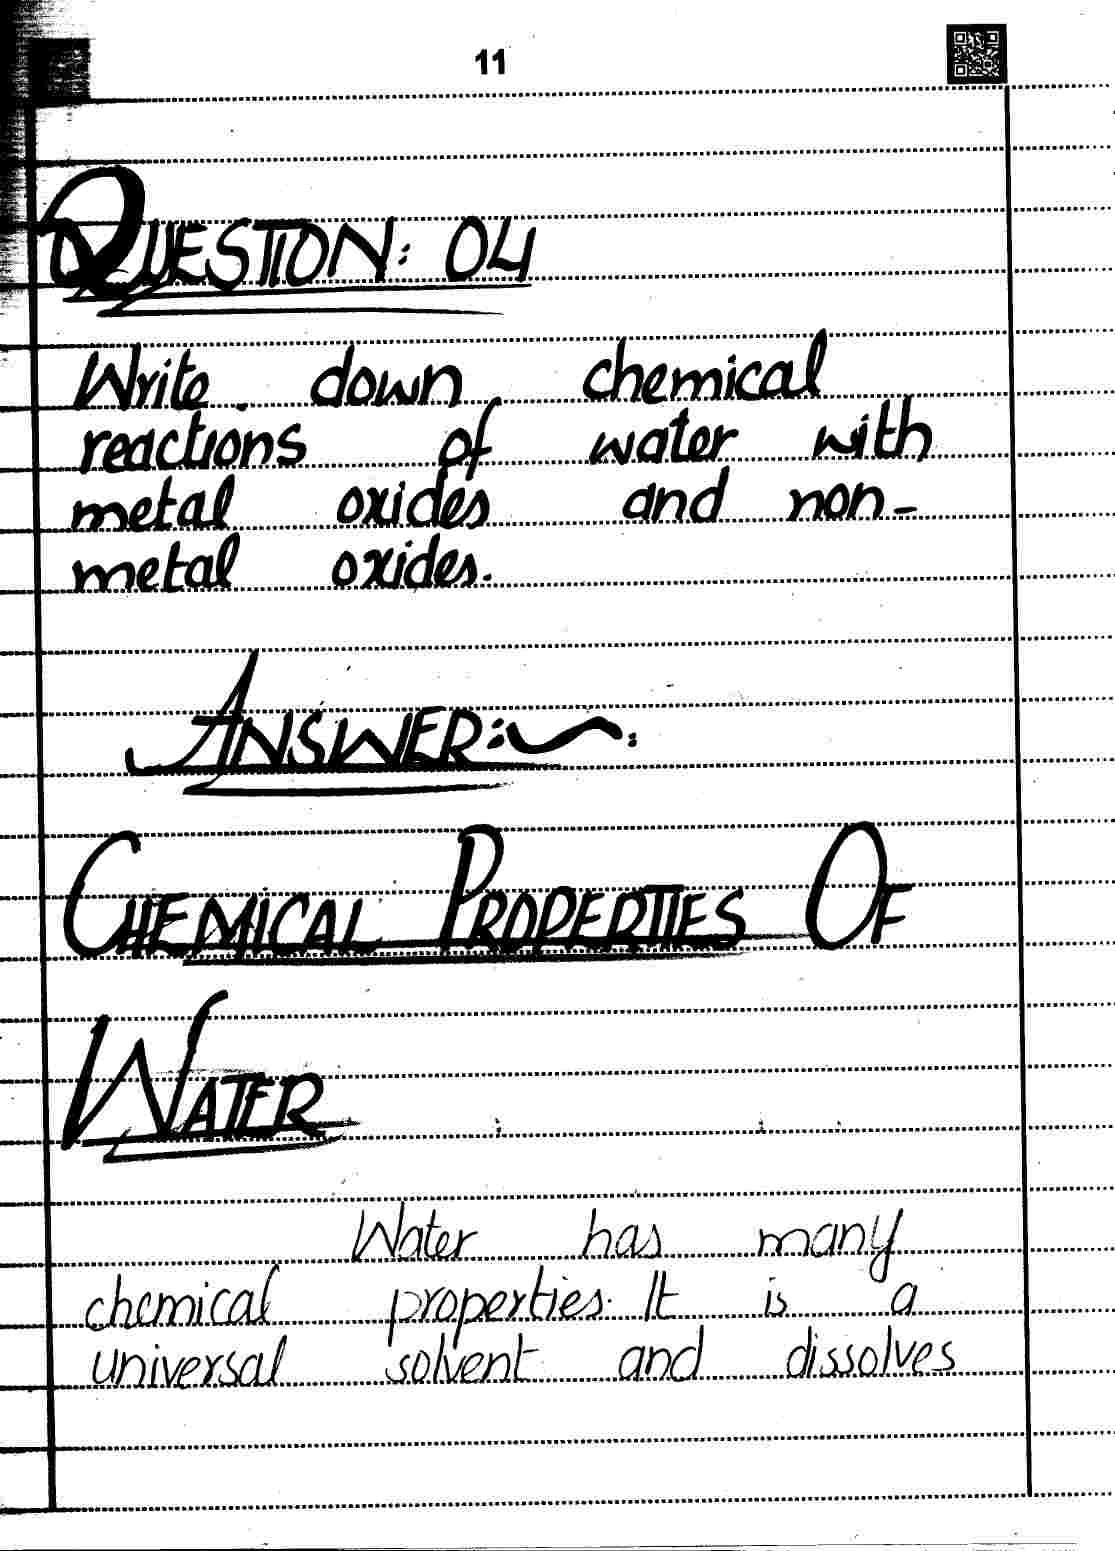 11
QUESTION: 04
Write down chemical
reactions of water with
metal oxides and non-
metal oxides.
ANSWER:~:
CHEMICAL PROPERTIES OF
WATER
Water has many
chemical properties. It is a
universal solvent and dissolves